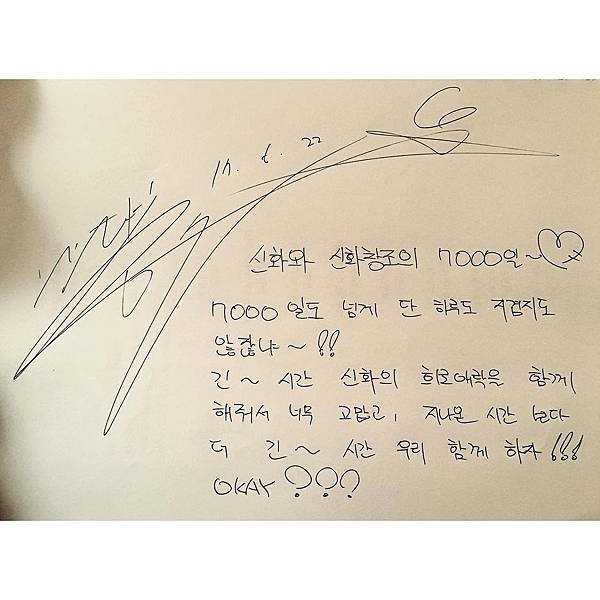 17. 6. 22
신화와 신화창조의 7000일~♡
7000일도 넘게 단 하루도 지겹지도
않찮냐~!!
긴~ 시간 신화의 희로애락을 함께
해줘서 너무 고맙고, 지나온 시간 보다
더 긴~ 시간 우리 함께 하자!!!
OKAY???